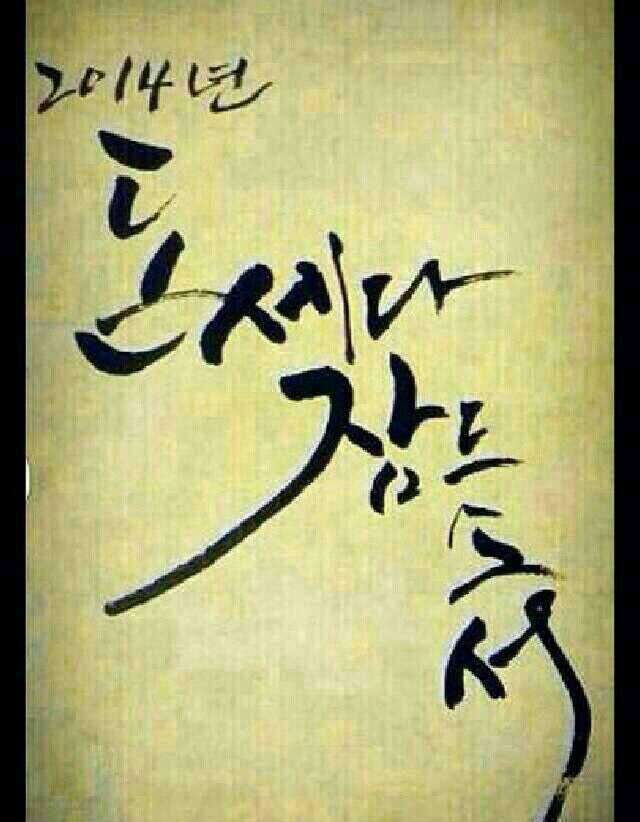 2014년
돈세다
잠드
소
서